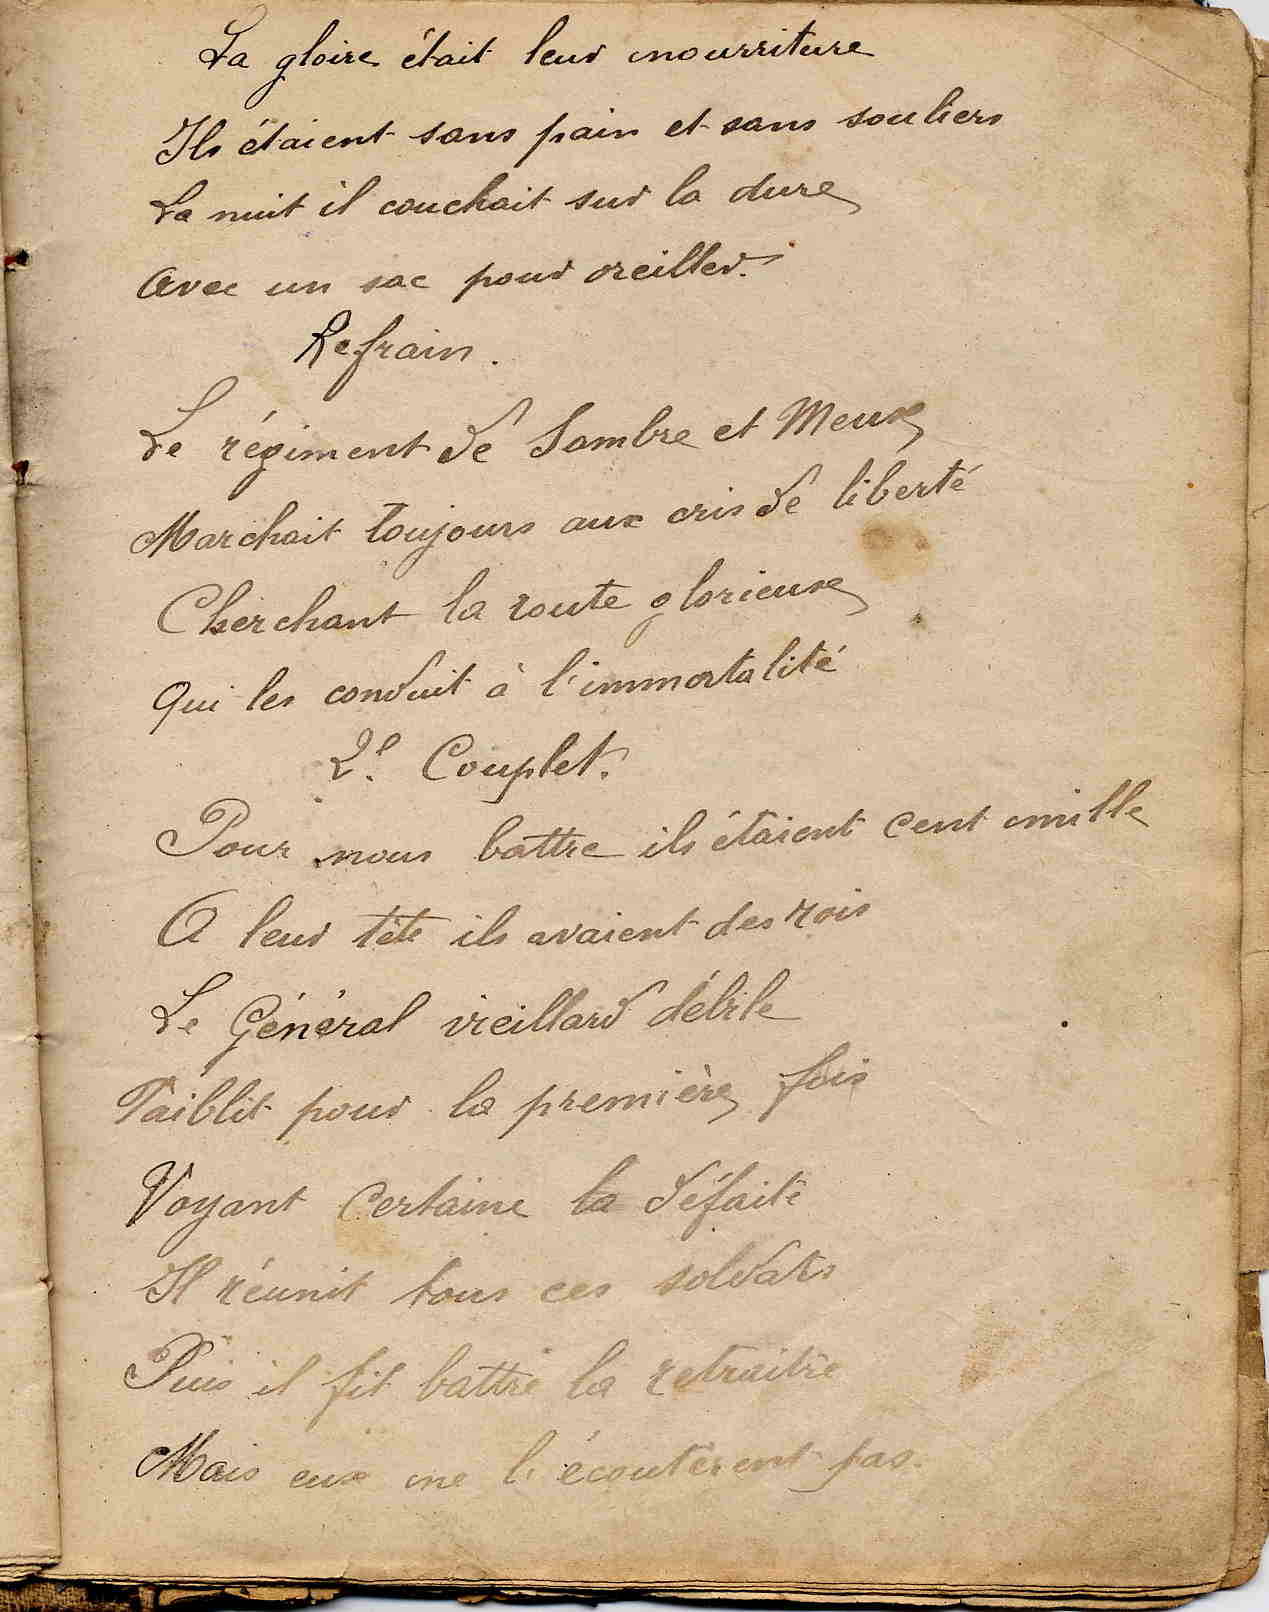 La gloire était leur nourriture
Ils étaient sans pain et sans souliers
La nuit il couchait sur la dure
Avec un sac pour oreiller.
Refrain.
Le régiment de Sambre et Meuse
Marchait toujours aux cris de liberté
Cherchant la route glorieuse
Qui les conduit à l'immortalité
2e. Couplet.
Pour nous battre ils étaient cent mille
A leur tête ils avaient des rois
Le Général vieillard débile
Faiblit pour la première fois
Voyant certaine la défaite
Il réunit tous ces soldats
Puis il fit battre la retraitre
Mais eux ne l'écoutèrent pas.